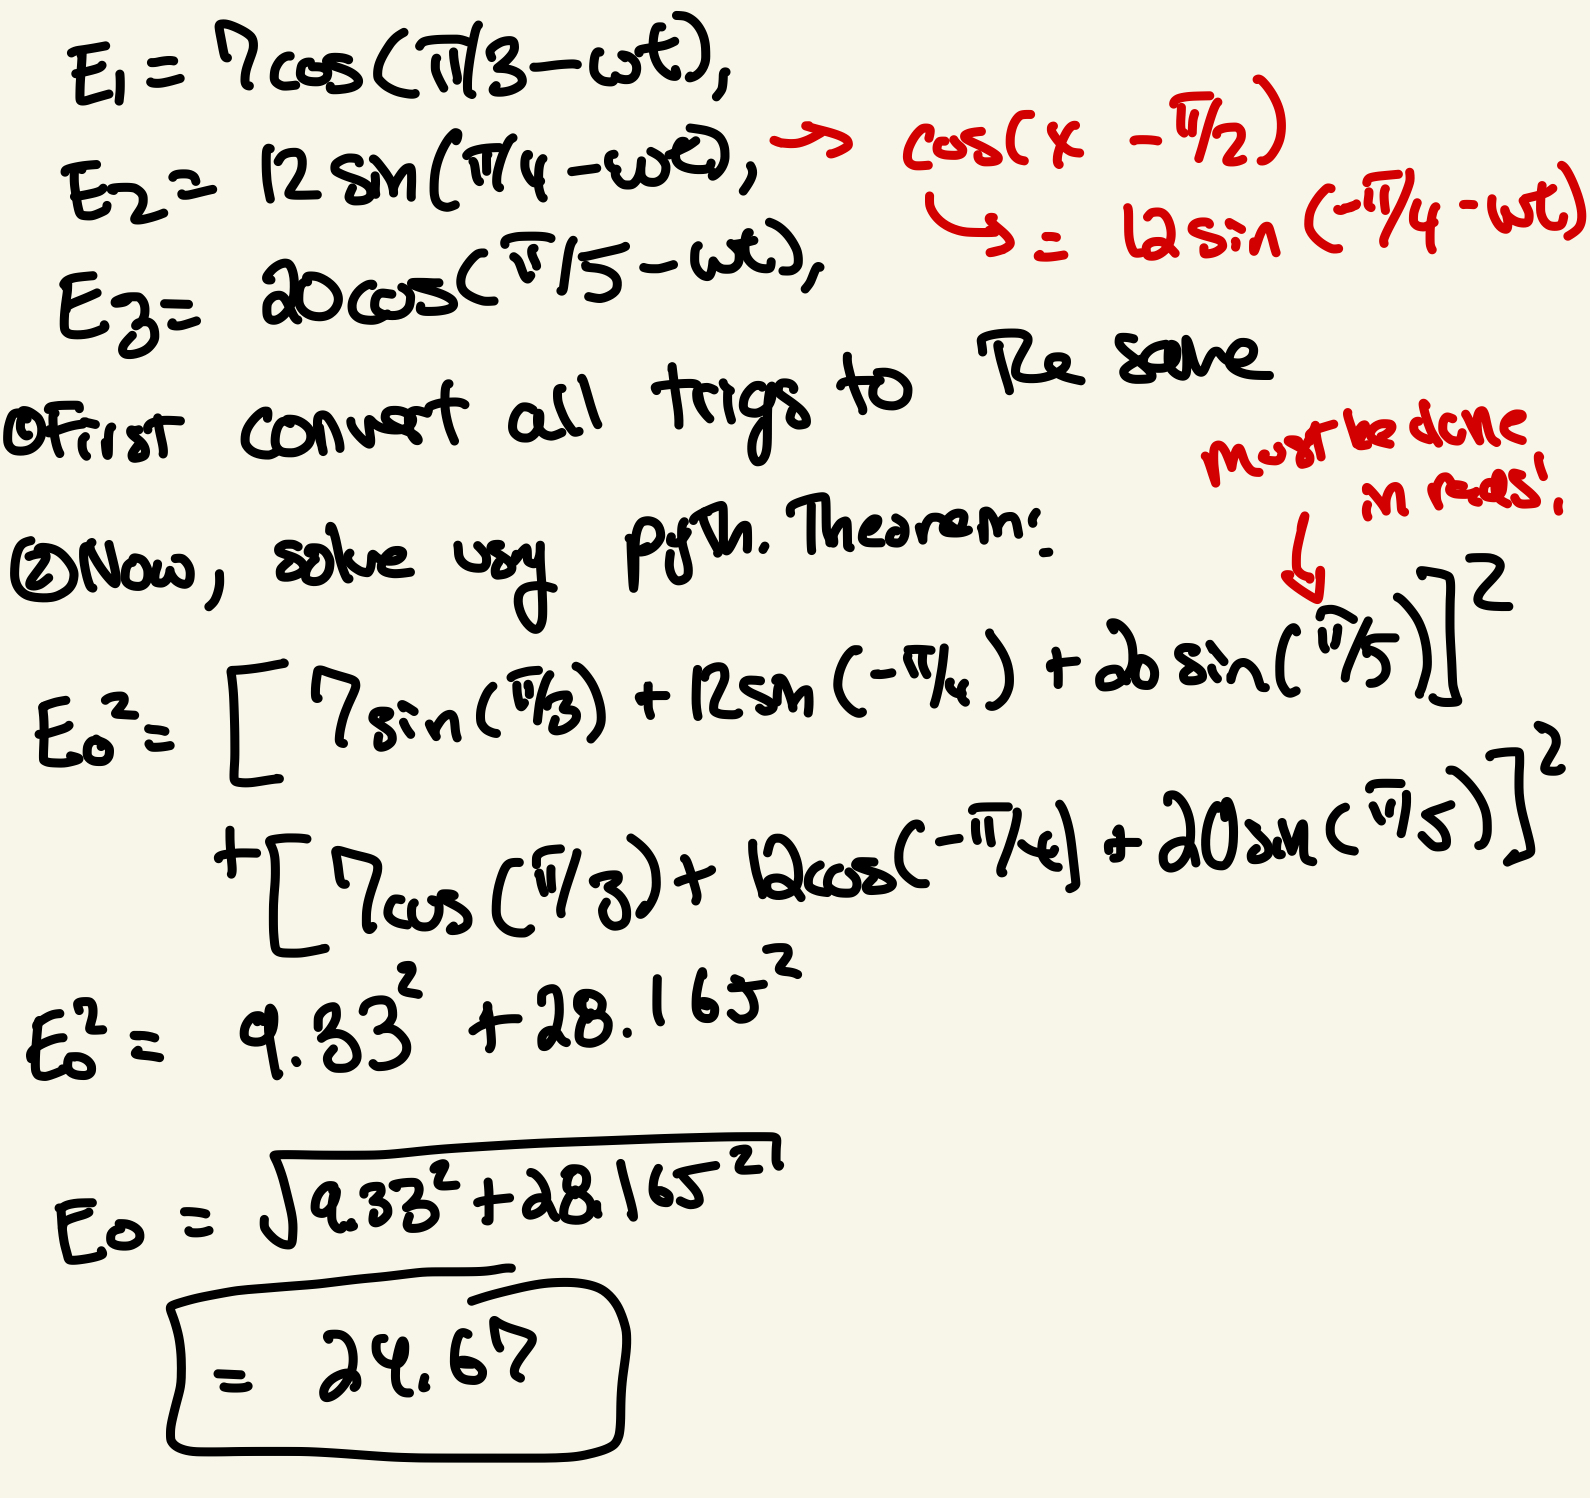 E₁ = 7cos(π/3-ωt),
E₂ = 12 sin(π/4-ωt), → cos(x - π/2)
↳ = 12 sin (-π/4 - ωt)
E₃ = 20cos(π/5-ωt),
①First convert all trigs to the same
must be done
in rads!
②Now, solve using pyth. Theorem:
E₀² = [7sin(π/3) + 12sin(-π/4) + 20 sin(π/5)]²
+[7cos(π/3) + 12cos(-π/4) + 20sin(π/5)]²
E₀² = 9.33² + 28.165²
E₀ = √9.33²+28.165²
= 24.67